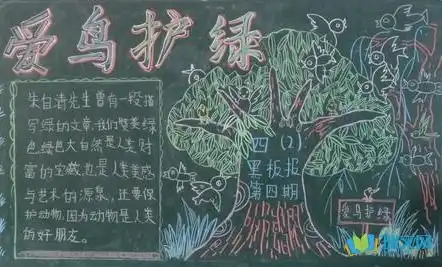 爱鸟护绿
朱自清先生曾有一段描
写绿的文章,我们赞美绿
色,绿色大自然是人类财
富的宝藏,也是人类美感
与艺术的源泉,还要保
护动物,因为动物是人类
的好朋友。
四(2)
黑板报
第四期
爱鸟护绿